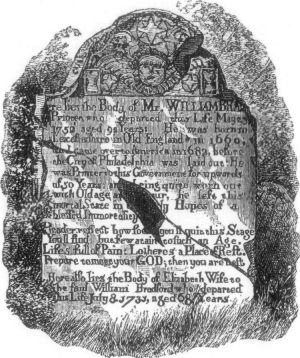 lies the Body of Mr. WILLIAM
Printer who departed this Life May
1752 aged Years: He was born in
Leicestershire in Old England in 1660.
and came over to America in 1682, before
the City of Philadelphia was laid out: He
was Printer to this Government for upwards
of 50 Years; and being quite worn out
with Old age and he left this
mortal State in Hopes of a
blessed Immortality
Reader reflect how soon you'll quit this Stage
You'll find but few attain to such an Age,
Life's full of Pain Lo here's a Place of Rest,
Prepare to meet your GOD; then you are blest.
Here also lies the Body of Elizabeth Wife to
the said William Bradford who departed
this Life July 8. 1731, aged 68 Years.